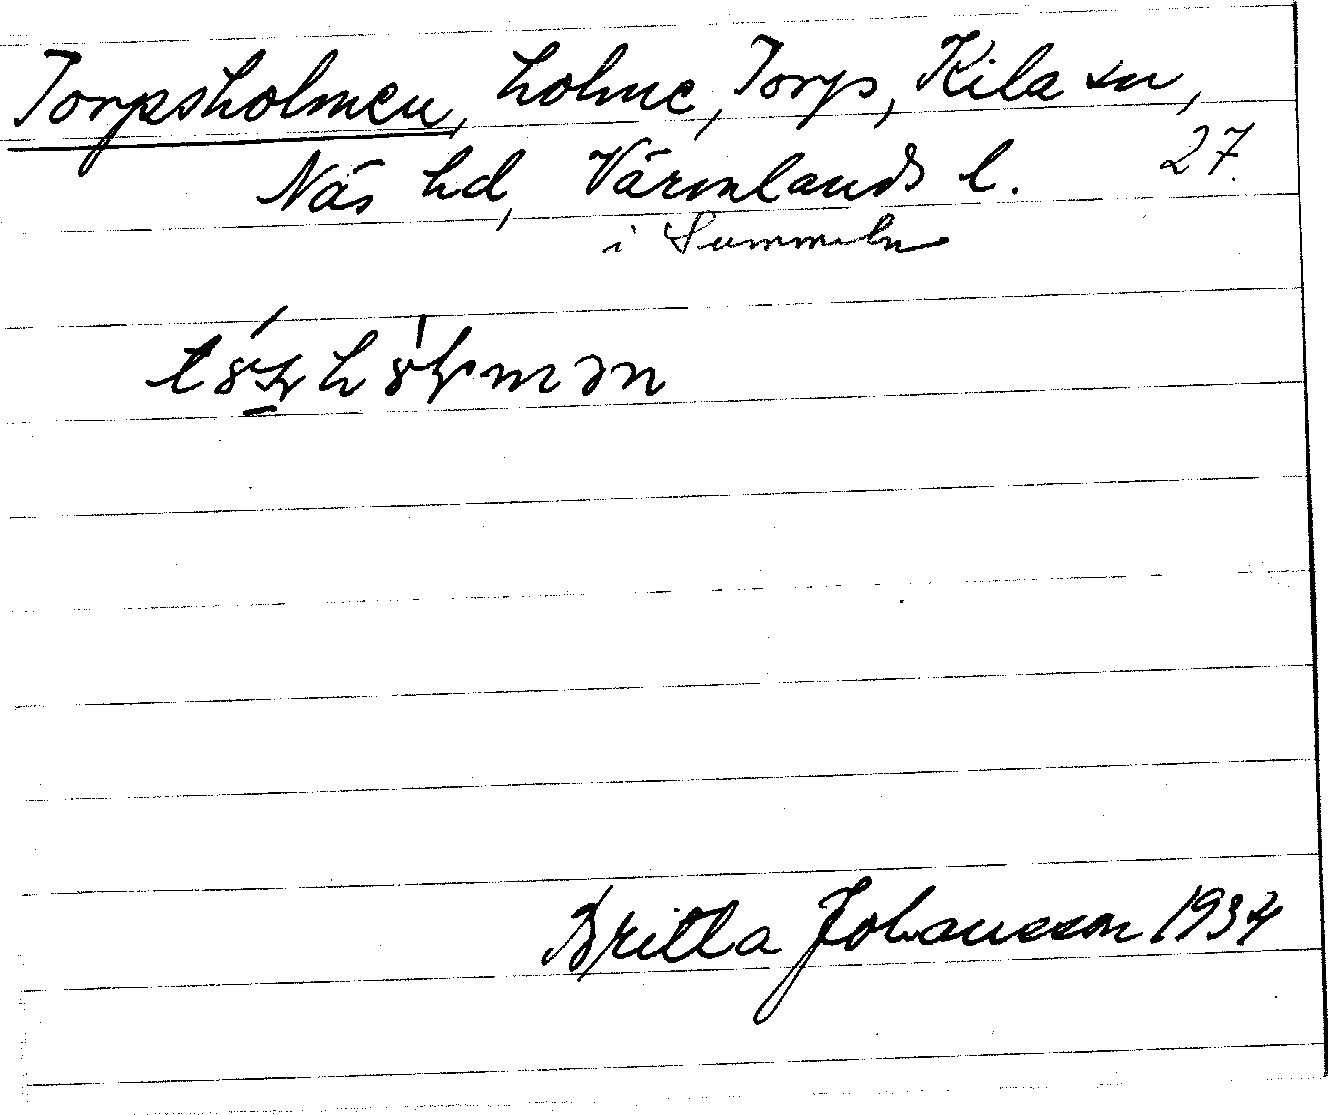 Torpsholmen, holme, Torp, Kila sn,
Näs hd, Värmlands l. 27.
i Summeln
Britta Johansson 1934